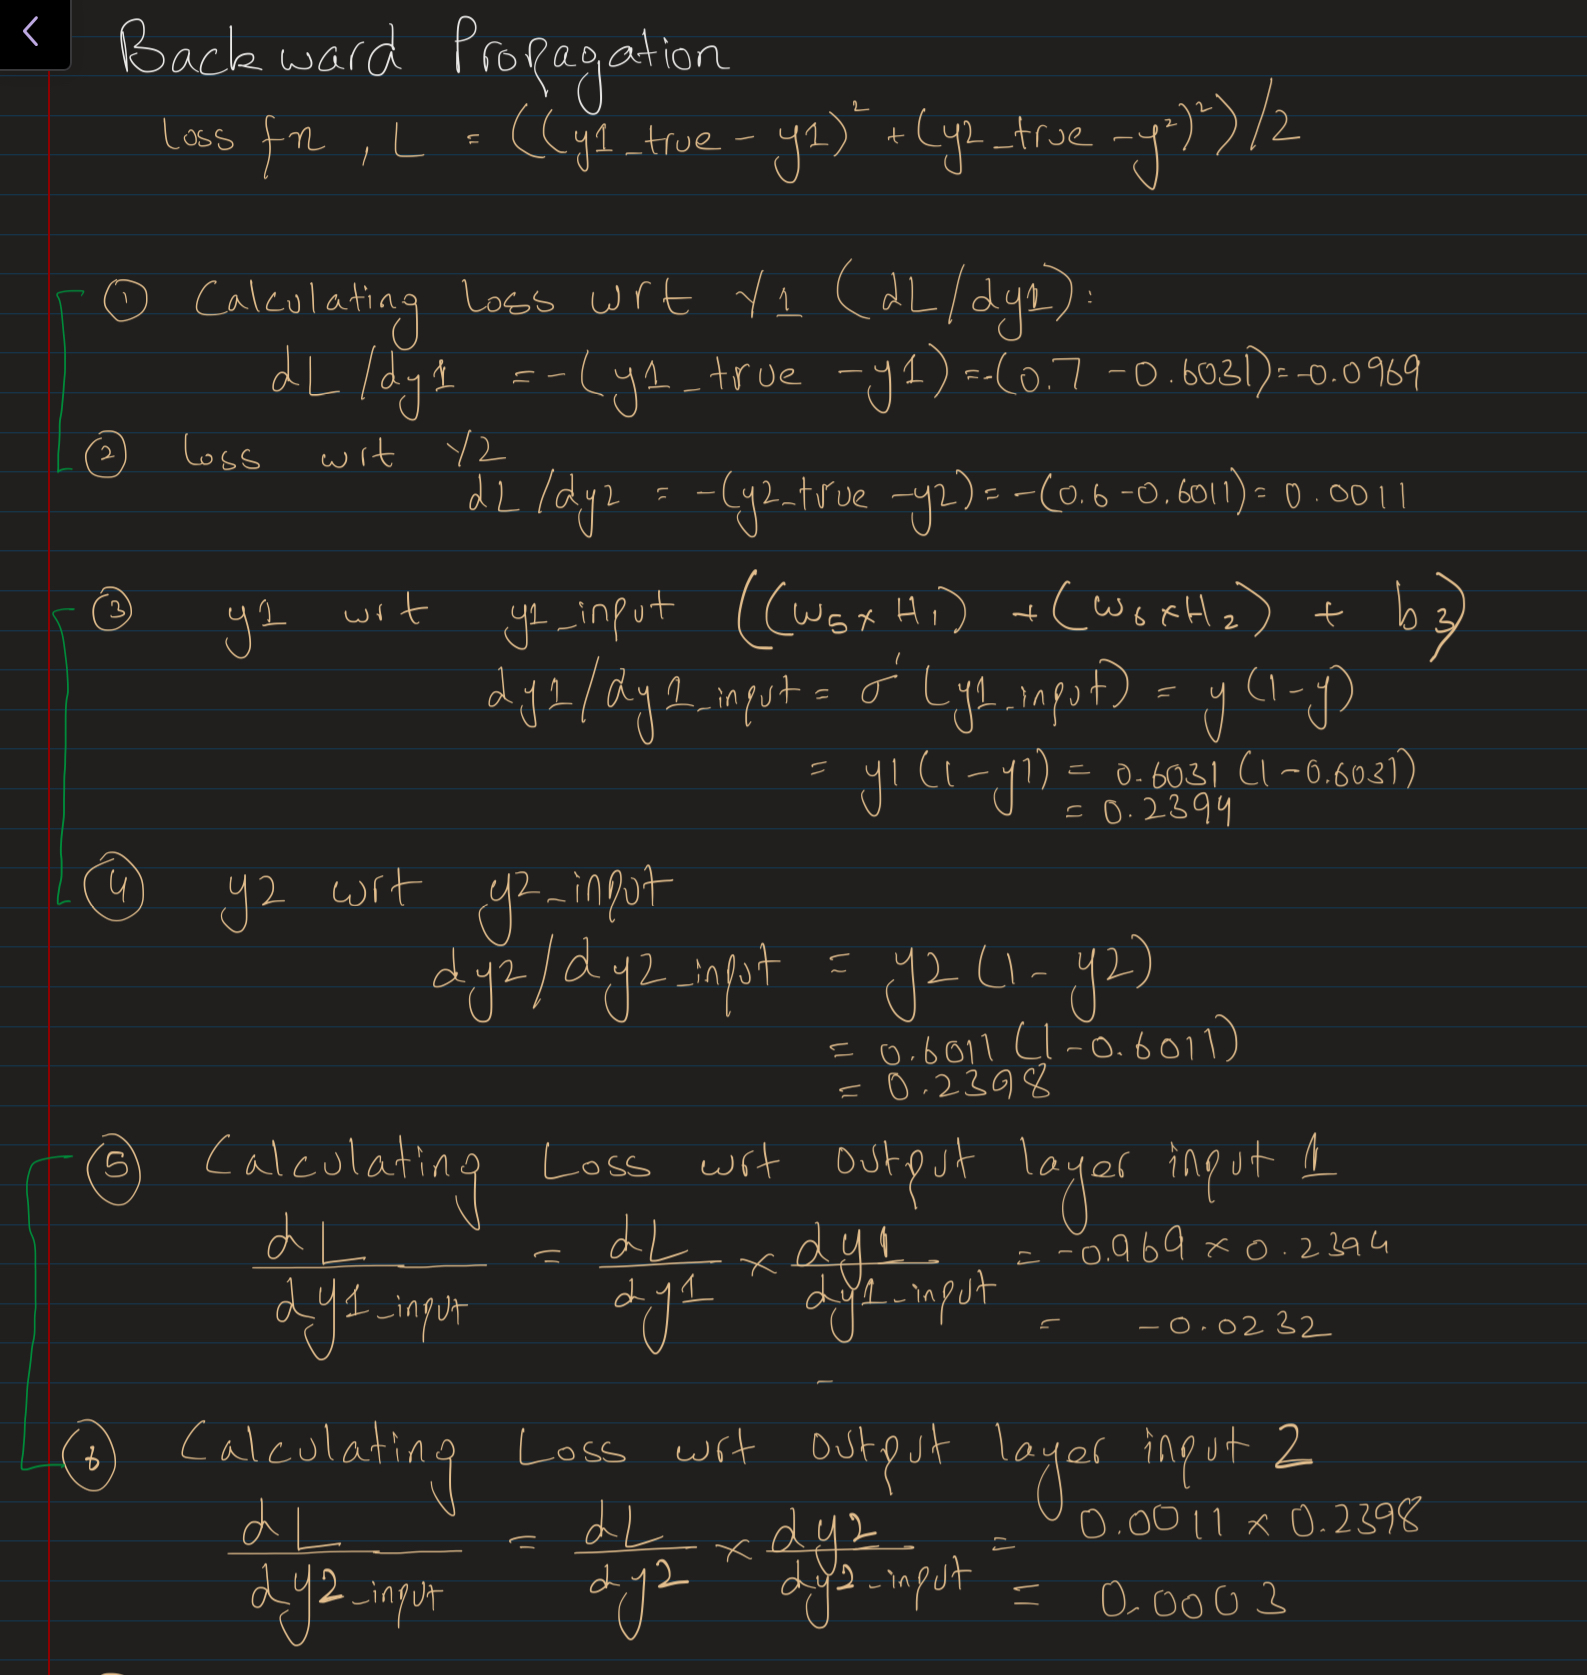 Backward Propagation
loss fn, L = ((y1_true - y1)² + (y2_true - y²)²)/2
① Calculating Loss wrt Y1 (dL/dy1):
dL/dy1 = -(y1_true - y1) = -(0.7 - 0.6031) = -0.0969
② Loss wrt Y2
dL/dy2 = -(y2_true - y2) = -(0.6 - 0.6011) = 0.0011
③ y1 wrt y1_input ((w5 x H1) + (w6 x H2) + b3)
dy1/dy1_input = σ'(y1_input) = y(1-y)
= y1(1-y1) = 0.6031(1-0.6031)
= 0.2394
④ y2 wrt y2_input
dy2/dy2_input = y2(1-y2)
= 0.6011(1-0.6011)
= 0.2398
⑤ Calculating Loss wrt output layer input 1
dL/dy1_input = dL/dy1 x dy1/dy1_input = -0.969 x 0.2394
= -0.0232
-
⑥ Calculating Loss wrt output layer input 2
dL/dy2_input = dL/dy2 x dy2/dy2_input = 0.0011 x 0.2398
= 0.0003